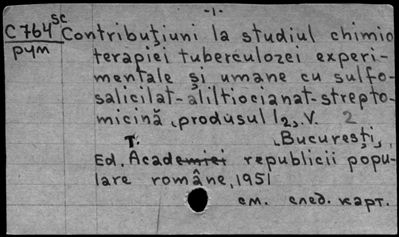 -1-
C764sc Contribuţiuni la studiul chimio
рум terapiei tuberculozei experi-
mentale şi umane cu sulfo-
salicilat-aliltiocianat-strepto-
micină (produsul I2). V. 2
T. Bucureşti,
Ed. Academiei republicii popu-
lare române, 1951
см. след. карт.